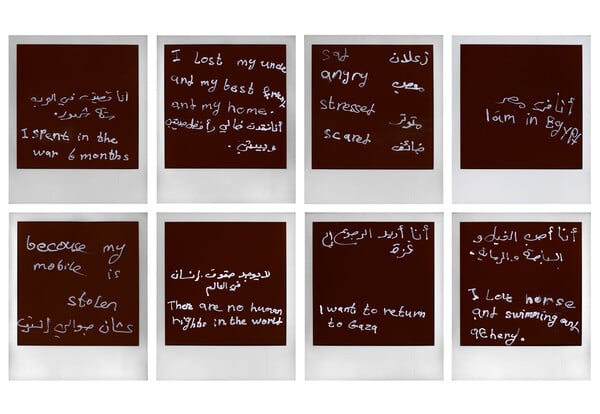 أنا قضيت في الحرب
ستة شهور.
I spent in the
war 6 months
I Lost my uncle
and my best
ant my home.
وبيتي.
sad زعلان
angry معصب
stressed متوتر
scared خائف
أنا في مصر
I am in Egypt
because my
mobile is
stolen
عشان جوالي
لا يوجد حقوق إنسان
في العالم
There are no human
rights in the world
أنا أريد الرجوع إلى
غزة
I want to return
to Gaza
أنا أحب الخيل و
السباحة والرماية.
I Love horse
and swimming and